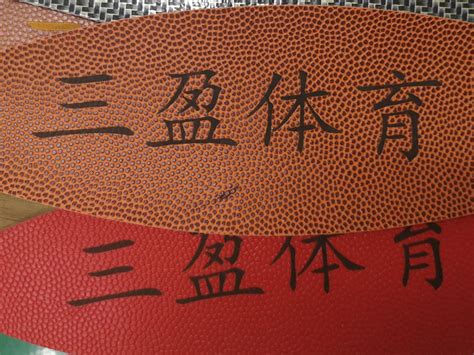 三盈体育
三盈体育